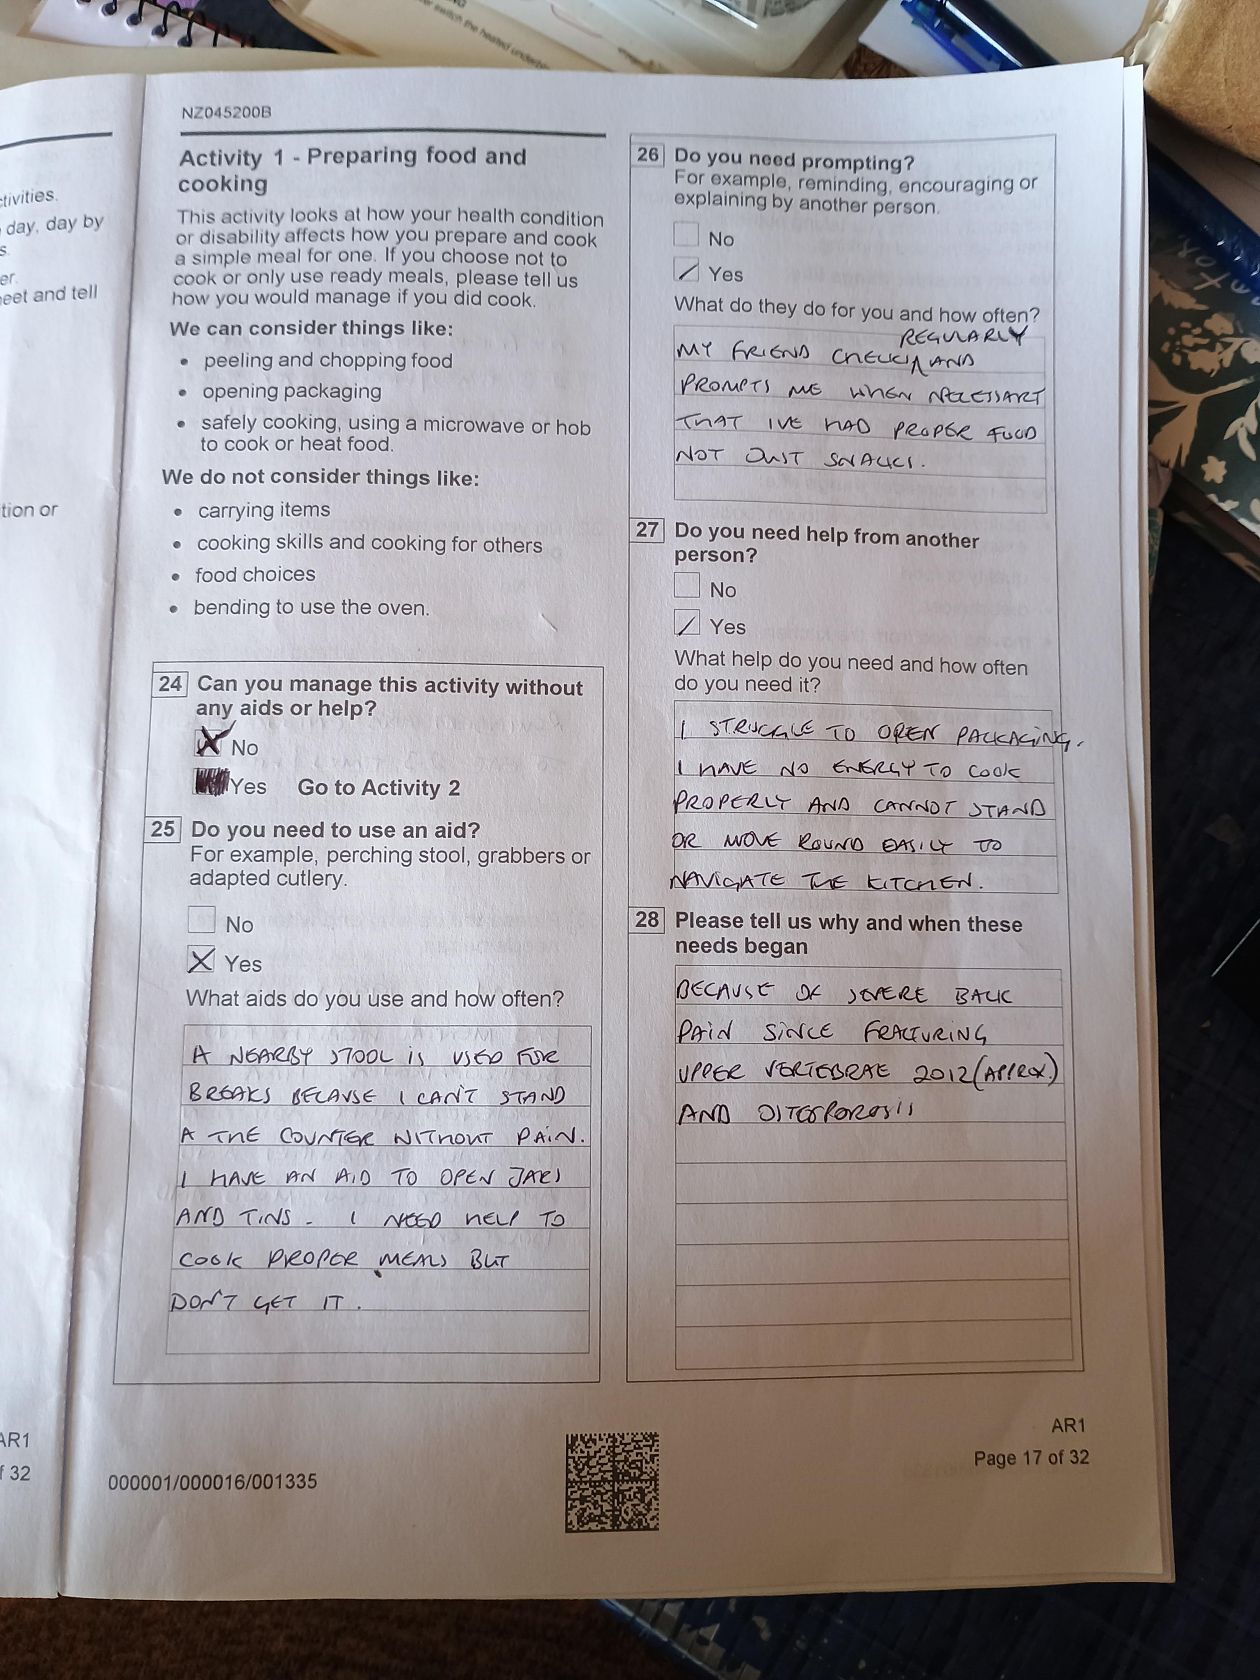 er switch the heated underb
NZ045200B
Activity 1 - Preparing food and
cooking
This activity looks at how your health condition
or disability affects how you prepare and cook
a simple meal for one. If you choose not to
cook or only use ready meals, please tell us
how you would manage if you did cook.
We can consider things like:
• peeling and chopping food
• opening packaging
• safely cooking, using a microwave or hob
to cook or heat food.
We do not consider things like:
• carrying items
• cooking skills and cooking for others
• food choices
• bending to use the oven.
24 Can you manage this activity without
any aids or help?
No
Yes Go to Activity 2
25 Do you need to use an aid?
For example, perching stool, grabbers or
adapted cutlery.
No
Yes
What aids do you use and how often?
A NEARBY STOOL IS USED FOR
BREAKS BECAUSE I CAN'T STAND
A THE COUNTER WITHOUT PAIN.
I HAVE AN AID TO OPEN JARS
AND TINS. I NEED HELP TO
COOK PROPER MEALS BUT
DON'T GET IT.
26 Do you need prompting?
For example, reminding, encouraging or
explaining by another person.
No
Yes
What do they do for you and how often?
REGULARLY
MY FRIEND CHECKS AND
PROMPTS ME WHEN NECESSARY
THAT IVE HAD PROPER FOOD
NOT JUST SNACKS.
27 Do you need help from another
person?
No
Yes
What help do you need and how often
do you need it?
I STRUGGLE TO OPEN PACKAGING.
I HAVE NO ENERGY TO COOK
PROPERLY AND CANNOT STAND
OR MOVE ROUND EASILY TO
NAVIGATE THE KITCHEN.
28 Please tell us why and when these
needs began
BECAUSE OF SEVERE BACK
PAIN SINCE FRACTURING
UPPER VERTEBRAE 2012 (APPROX)
AND OSTEOPOROSIS
AR1
Page 17 of 32
000001/000016/001335
ctivities.
day, day by
s.
er.
eet and tell
tion or
AR1
f 32